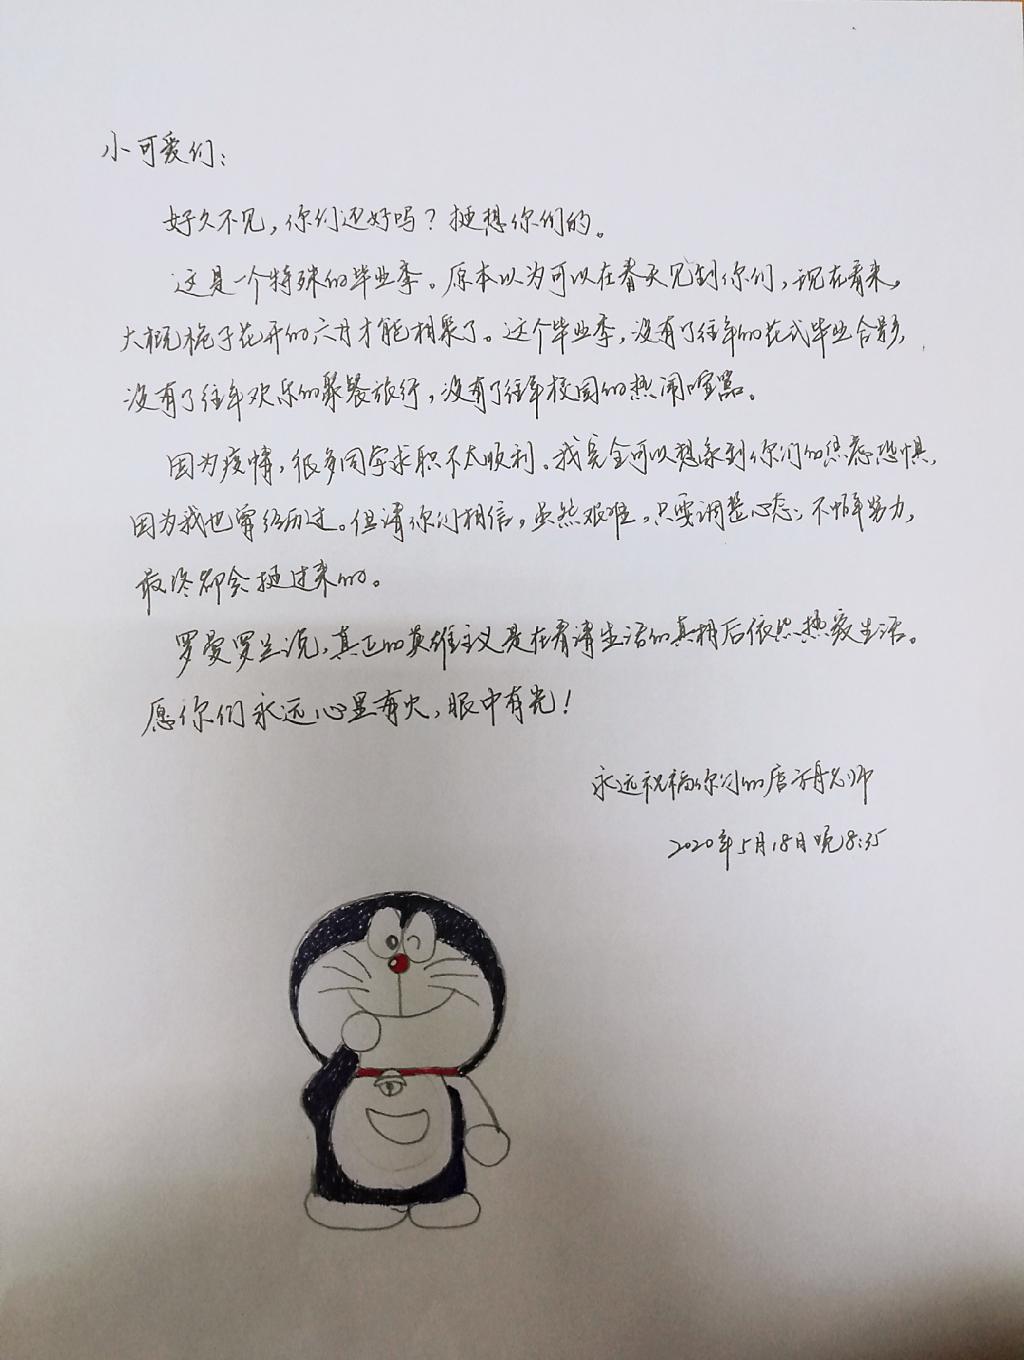 小可爱们：
好久不见，你们还好吗？挺想你们的。
这是一个特殊的毕业季。原本以为可以在春天见到你们，现在看来，
大概栀子花开的六月才能相聚了。这个毕业季，没有了往年的花式毕业合影，
没有了往年欢乐的聚餐旅行，没有了往年校园的热闹喧嚣。
因为疫情，很多同学求职不太顺利。我完全可以想象到你们的焦虑恐惧，
因为我也曾经历过。但请你们相信，虽然艰难，只要调整心态，不懈努力，
最终都会挺过来的。
罗曼罗兰说，真正的英雄主义是在看清生活的真相后依然热爱生活。
愿你们永远心里有火，眼中有光！
永远祝福你们的唐丹老师
2020年5月18日晚8:35